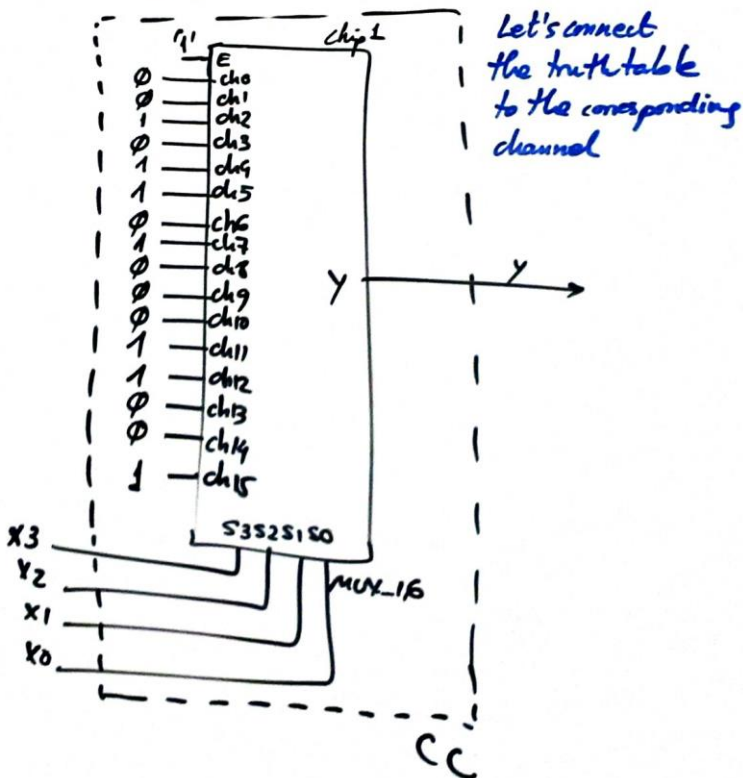 Let's connect
the truth table
to the corresponding
channel
chip1
'1' E
Ø ch0
Ø ch1
1 ch2
Ø ch3
1 ch4
1 ch5
Ø ch6
1 ch7
Ø ch8
Ø ch9
Ø ch10
1 ch11
1 ch12
Ø ch13
Ø ch14
1 ch15
Y
Y
S3 S2 S1 S0
MUX_16
X3
X2
X1
X0
CC